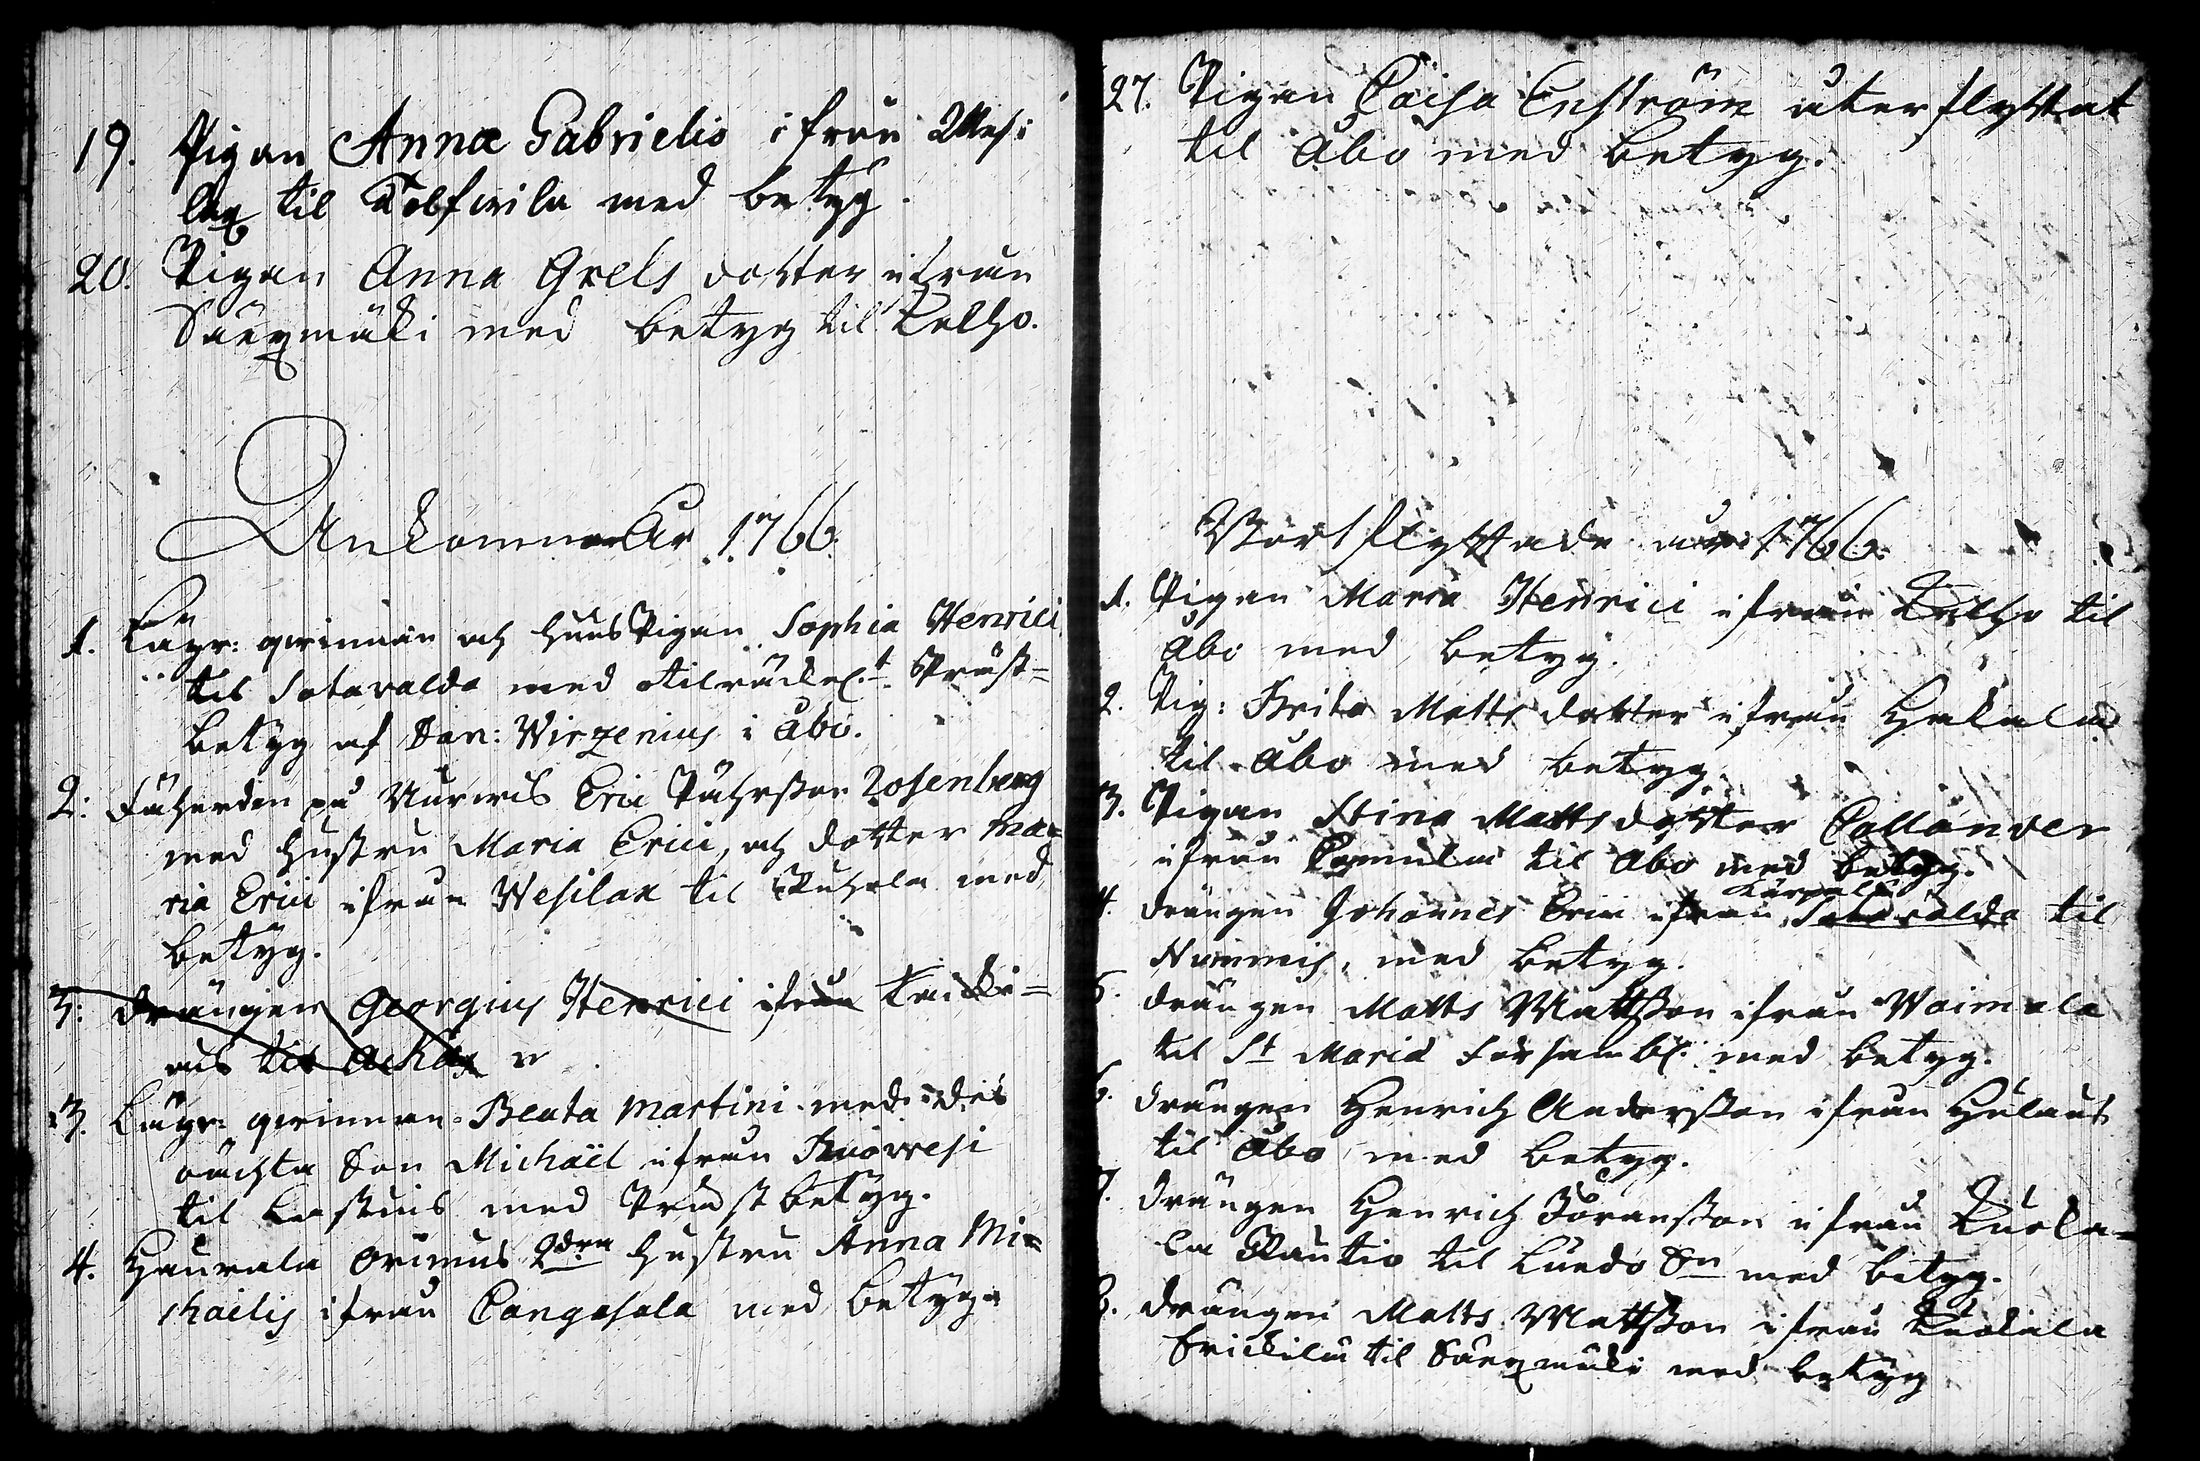 19. Pigan Anna Gabrielis ifrån Wesi
lax til Tolfwila med betyg.
20. Pigan Anna Grels dotter ifrån
Sääxmäki med betyg til Kelho.
Ankomne År 1766.
1. Inhys: qwinnan och huus Pigan Sophia Henrici
til Sotavalda med otilräckel:t Präst=
betyg af Sac: Wirzenius i Åbo.
2: Fäherden på Nurmis Eric Påhrsson Rosenberg
med hustru Maria Erici, och dotter Ma=
ria Erici ifrån Wesilax til Puhola med
betyg.
3: drängen Georgius Henrici ifrån
til
3. Inhys: qwinnan Beata Martini med des
oächta Son Michaël ifrån Ruovvesi
til med Prästbetyg.
4. Haurala Grimus 2dra hustru Anna Mi=
chaelis ifrån Cangasala med betyg.
27. Pigan Caisa Enström återflyttat
til Åbo med betyg.
Bortflyttade år 1766.
1. Pigan Maria Henrici ifrån Kelho til
Åbo med betyg.
2. Pig: Brita Matts dotter ifrån Hakala
til Åbo med betyg.
3. Pigan Stina Matts dotter Collander
ifrån til Åbo med betyg.
4. drängen Johannes Erici ifrån Sotavalda til
Nummis, med betyg.
5. drängen Matts Mattsson ifrån Woimala
til St Mariæ Försambl: med betyg.
6. drängen Henrich Andersson ifrån Hulaus
til Åbo med betyg.
7. drängen Henrich Göransson ifrån Kuola=
la Rautio til Lundo Sn med betyg.
8. drängen Matts Mattsson ifrån Kuokala
Erickilä til Sääxmäki med betyg